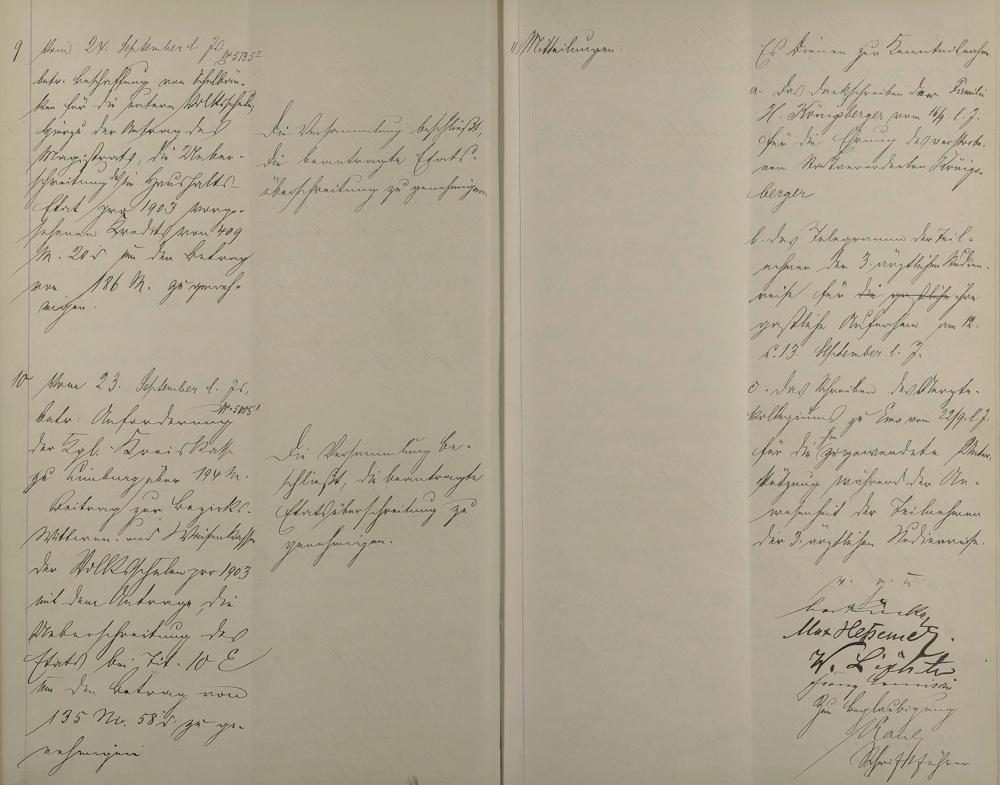 9 Vom 24. September l. Js.
№ 5135 I
betr. Beschaffung von Schulbän-
ken für die untern Volksschulen,
hierzu der Antrag des
Magistrats, die Ueber-
schreitung des im Haushalts-
Etat pro 1903 vorge-
sehenen Credits von 409
M. 20 ₰ um den Betrag
von 186 M. zu geneh-
migen.
Die Versammlung beschließt,
die beantragte Etats-
überschreitung zu genehmigen.
10 Vom 23. September l. Js.
betr: Anforderung
der Kgl. Kreiskasse
zu Limburg über 194 M.
Beitrag zur Bezirks-
Wittwen- und Waisenkasse
der Volksschulen pro 1903
mit dem Antrage, die
Ueberschreitung des
Etats bei Tit. 10 E
um den Betrag von
135 M. 58 ₰ zu ge-
nehmigen
Die Versammlung be-
schließt, die beantragte
Etatsüberschreitung zu
genehmigen.
11) Mitteilungen:
Es dienen zur Kenntnisnahme
a. das Dankschreiben der Familie
H. Königsberger vom 16/9. l. J.
für die Ehrung des verstorbe-
nen Stadtverordneten Königs-
berger
b. das Telegramm der Teil-
nehmer der 3. ärztlichen Studien-
reise für die gastliche ihre
gastliche Aufnahme am 12.
u. 13. September l. J.
c. das Schreiben des Aerzte-
kollegiums zu Ems vom 22/9. l. J.
für die ihm zugewendete Unter-
stützung während der An-
wesenheit der Teilnehmer
der 3. ärztlichen Studienreise.
v. g. u.
Max Hessemer.
Zur Beglaubigung
Schriftführer